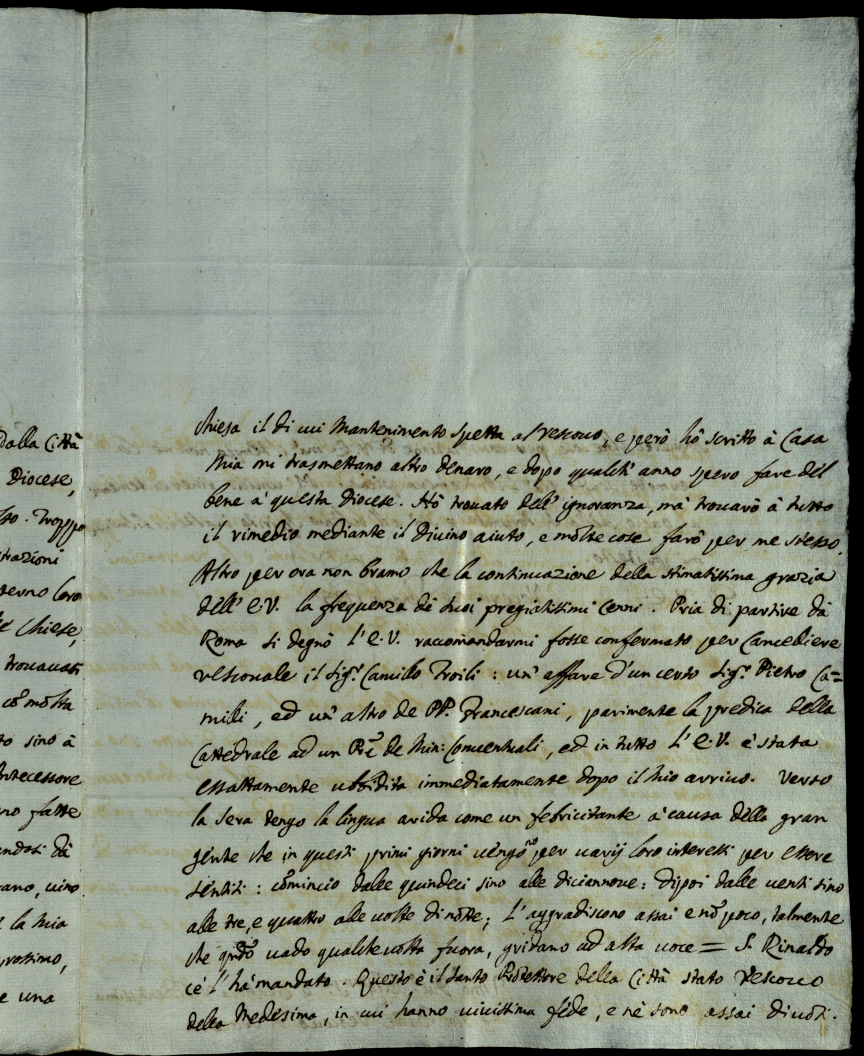 dalla Città
Diocese,
sso. Troppo
strazioni
verno loro
le Chiese,
trouauasi
co' molta
to sino à
Antecessore
no fatte
endosi dà
ano, uino
e la mia
rossimo,
e una
chiesa il di cui Mantenimento spetta al Vescouo, e però hò scritto à Casa
Mia mi trasmettano altro denaro, e dopo qualch' anno spero fare del
bene a' questa Diocese. Hò trouato dell' ignoranza, mà trouarò à tutto
il rimedio mediante il Diuino aiuto, e molte cose farò per me stesso.
Altro per ora non bramo che la continuazione della stimatissima grazia
dell' E.V. la frequenza de suoi pregiatissimi Cenni. Pria di partire dà
Roma si degnò l' E.V. raccomandarmi fosse confermato per Cancelliere
Vescouale il Sig.r Camillo Troili : un' affare d'un certo Sig.r Pietro Ca=
mili, ed un' altro de PP. Francescani, parimente la predica della
Cattedrale ad un Pre de Min: Conuentuali, ed in tutto L' E.V. è stata
esattamente ubidita immediatamente dopo il mio arriuo. Verso
la sera tengo la lingua arida come un febricitante a' causa della gran
gente che in questi primi giorni uengono per uarij loro interessi per essere
sentiti : comincio dalle quindeci sino alle diciannoue: Dipoi dalle uenti sino
alle tre, e quattro alle uolte di notte; L' aggradiscono assai e nõ poco, talmente
che qndo uado qualche uolta fuora, gridano ad alta uoce = S. Rinaldo
ce l' hà mandato. Questo è il Santo Protettore della Città stato Vescouo
della Medesima, in cui hanno uiuissima fede, e ne sono assai diuoti.